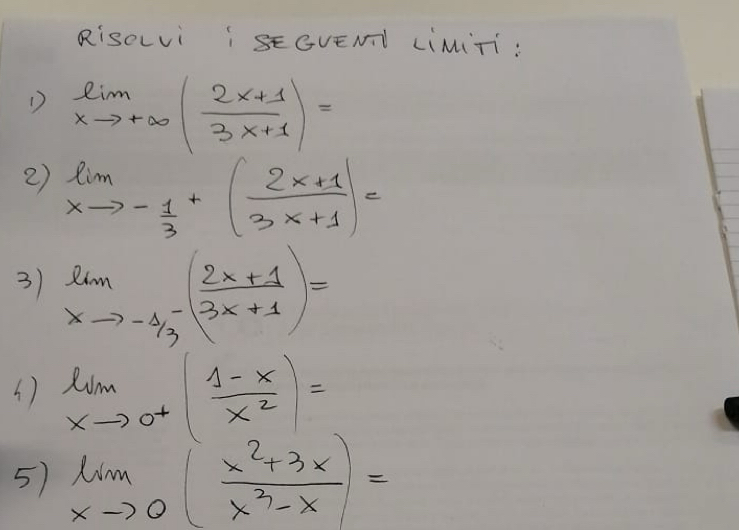 RISOLVI i SEGUENTI LIMITI:
1) lim x→+∞ (2x+1 / 3x+1) =
2) lim x→-1/3⁺ (2x+1 / 3x+1) =
3) lim x→-1/3⁻ (2x+1 / 3x+1) =
4) lim x→0⁺ (1-x / x²) =
5) lim x→0 (x²+3x / x³-x) =